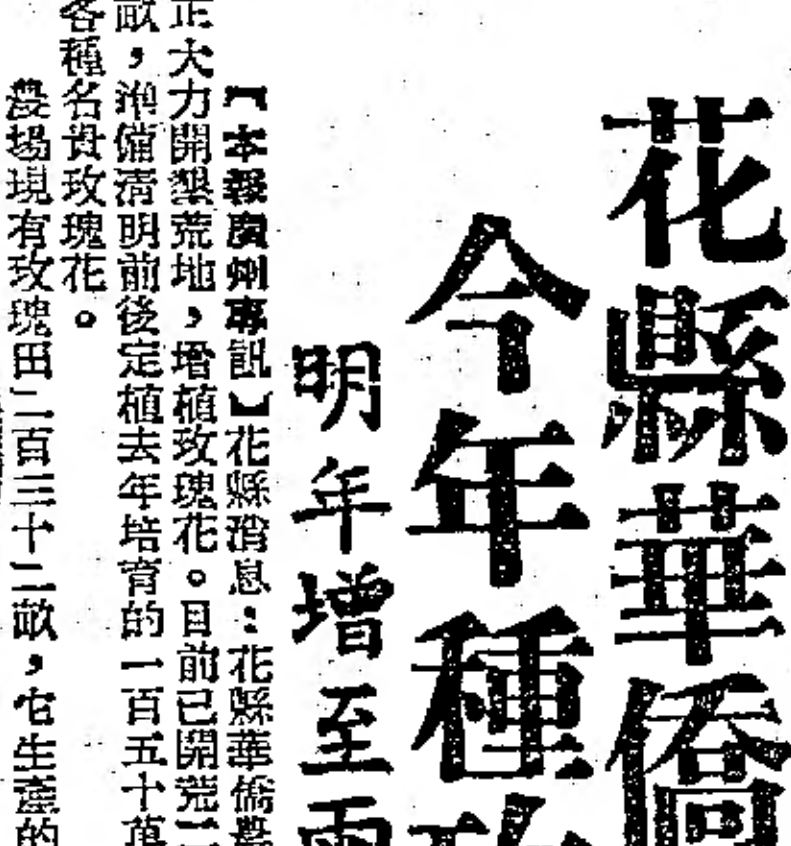 花縣華僑
今年種
明年增至
【本報廣州專訊】花縣消息：花縣華僑農
正大力開墾荒地，增植玫瑰花。目前已開荒二
畝，準備清明前後定植去年培育的一百五十萬
各種名貴玫瑰花。
農場現有玫瑰田二百三十二畝，它生產的